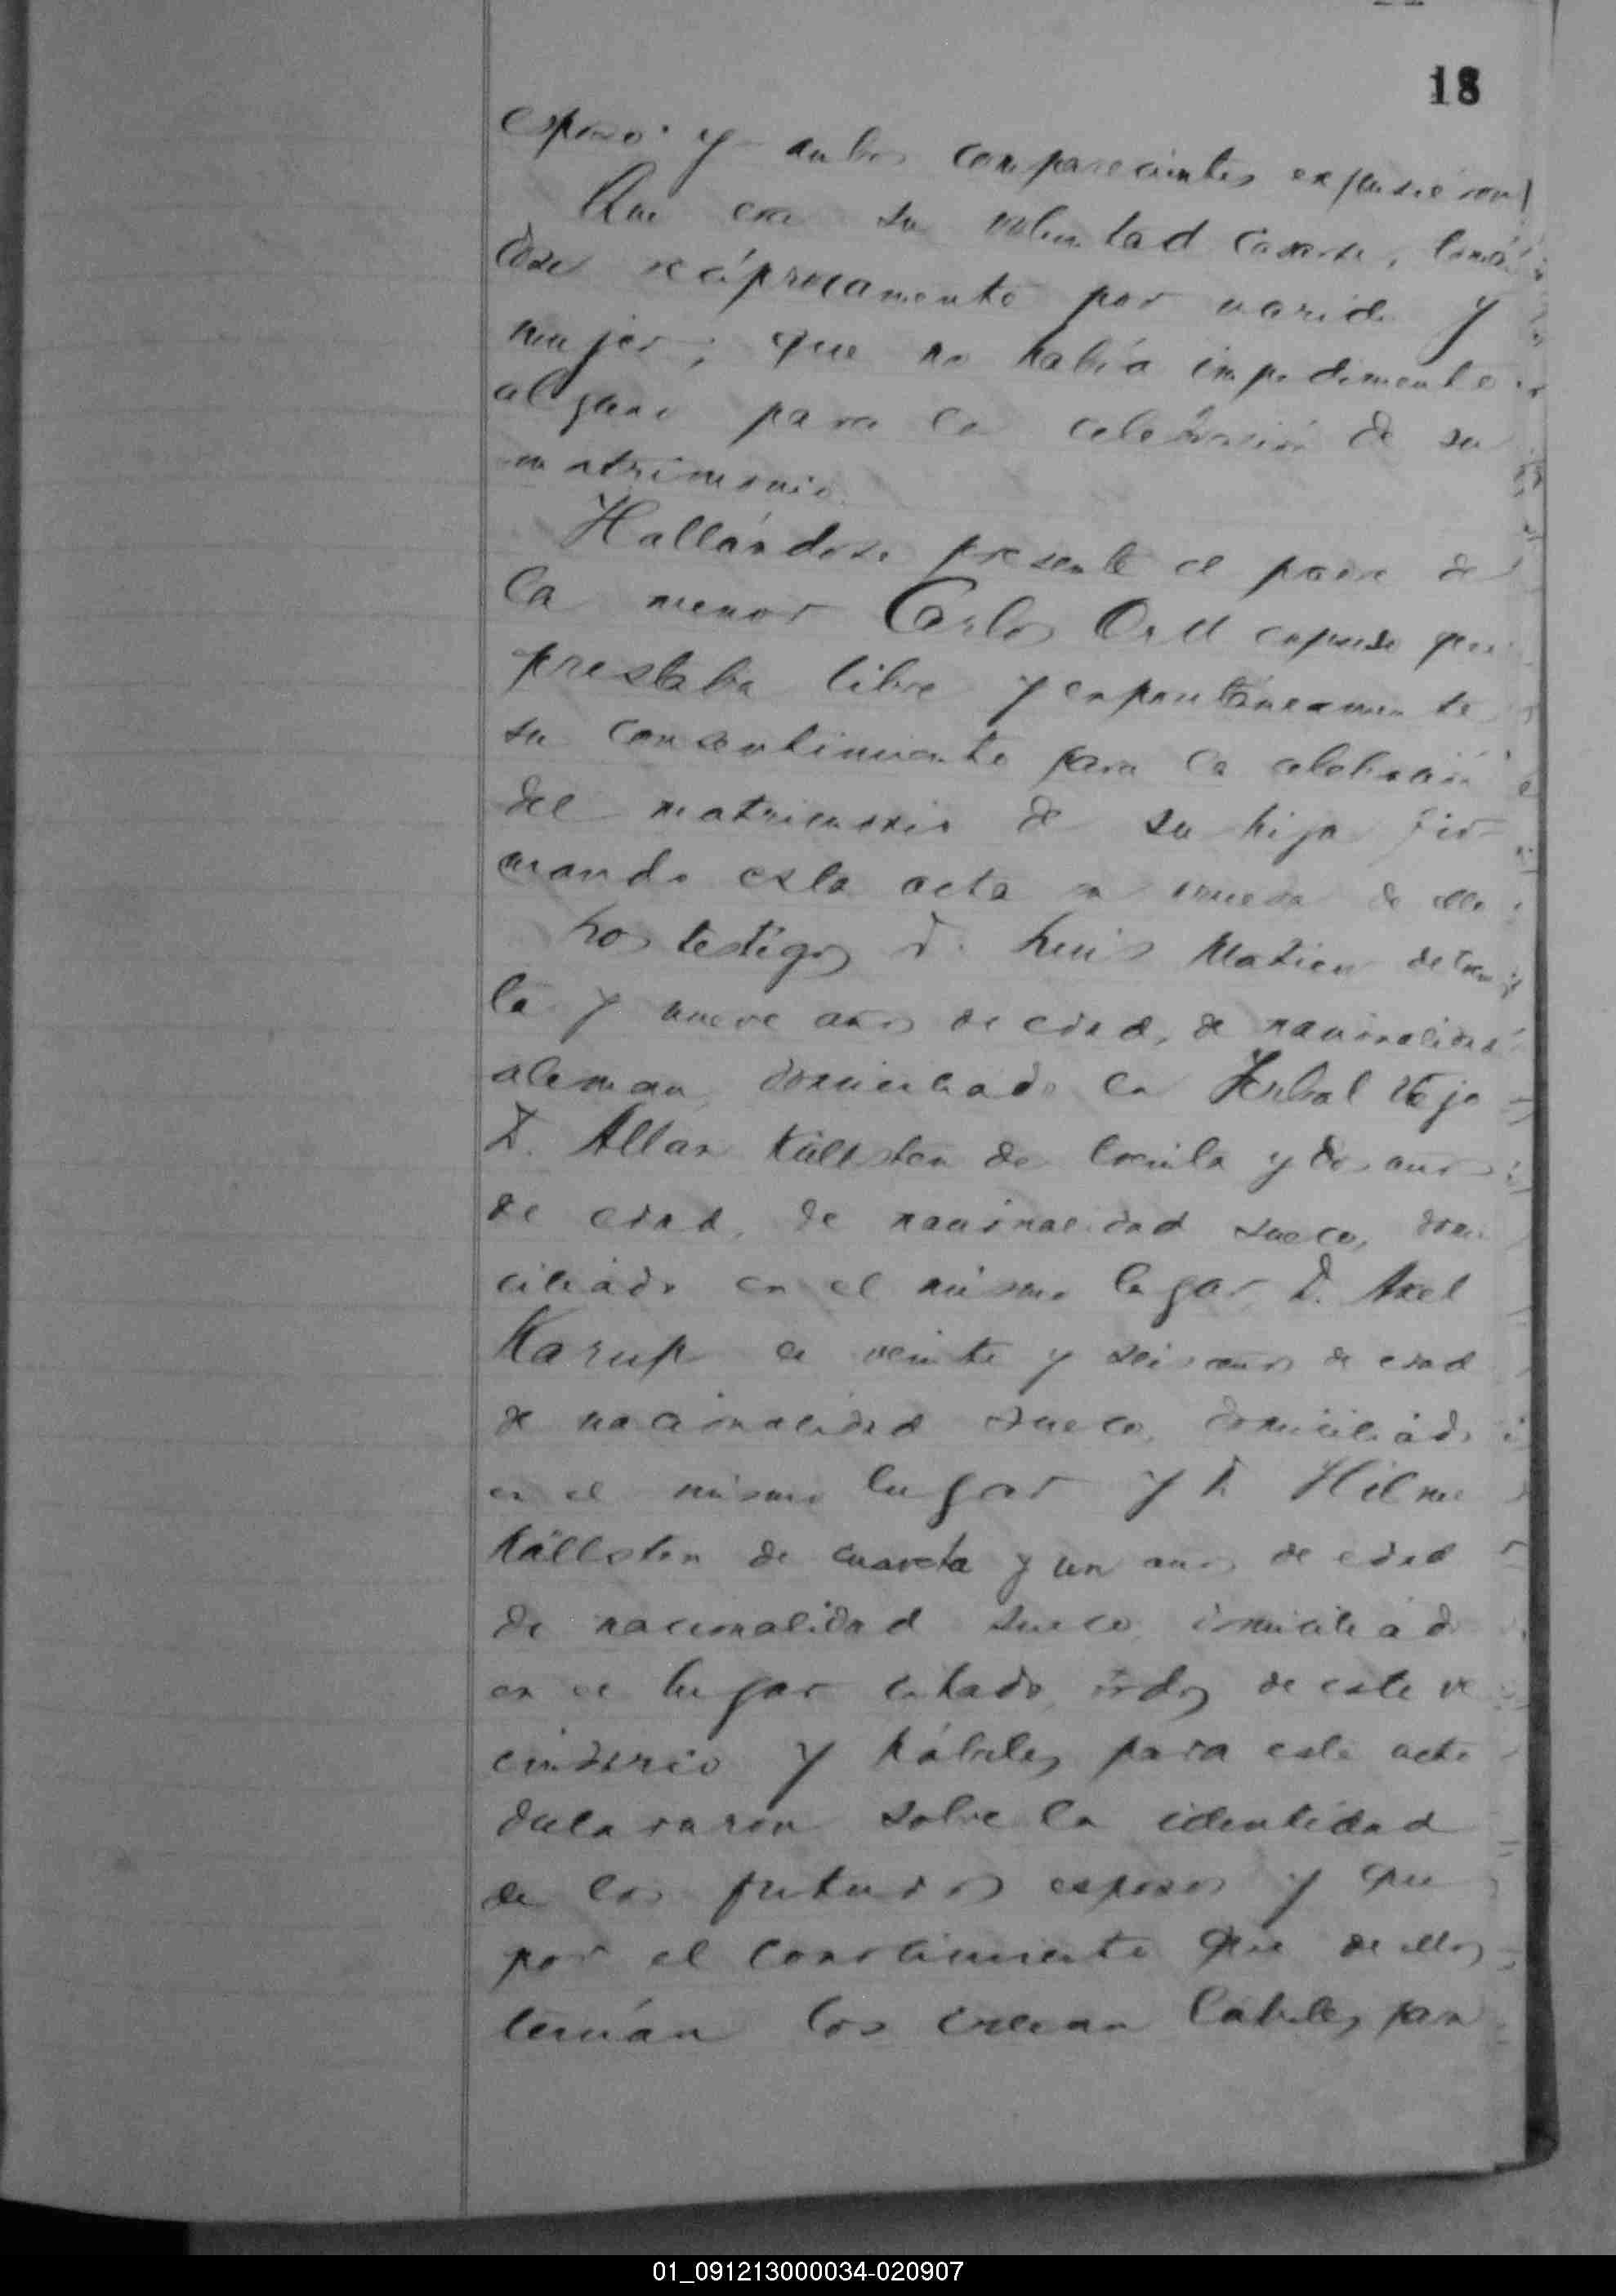 18
esposo y ambos comparecientes expusieron
Que era su voluntad casarse, tomán
dose recíprocamente por marido y
mujer; que no había impedimento
alguno para la celebración de su
matrimonio.
Hallándose presente el padre de
la menor Carlos Orll expuso que
prestaba libre y expontáneamente
su consentimiento para la celebración
del matrimonio de su hija fir-
mando esta acta en prueba de ello
Los testigos D. Luis Matien de trein
ta y nueve años de edad, de nacionalidad
aleman, domiciliado en Yerbal Viejo
D. Allan Källsten de treinta y dos años
de edad, de nacionalidad sueco, domi
ciliado en el mismo lugar, D. Axel
Karup de veinte y seis años de edad
de nacionalidad sueco, domiciliado
en el mismo lugar y D. Hilme
Källsten de cuareta y un años de edad
de nacionalidad sueco, domiciliado
en el lugar citado, todos de este ve
cindario y hábiles para este acto
declararon sobre la identidad
de los futuros esposos y que
por el conocimiento que de ellos
tenían los creian hábiles para
01_091213000034-020907